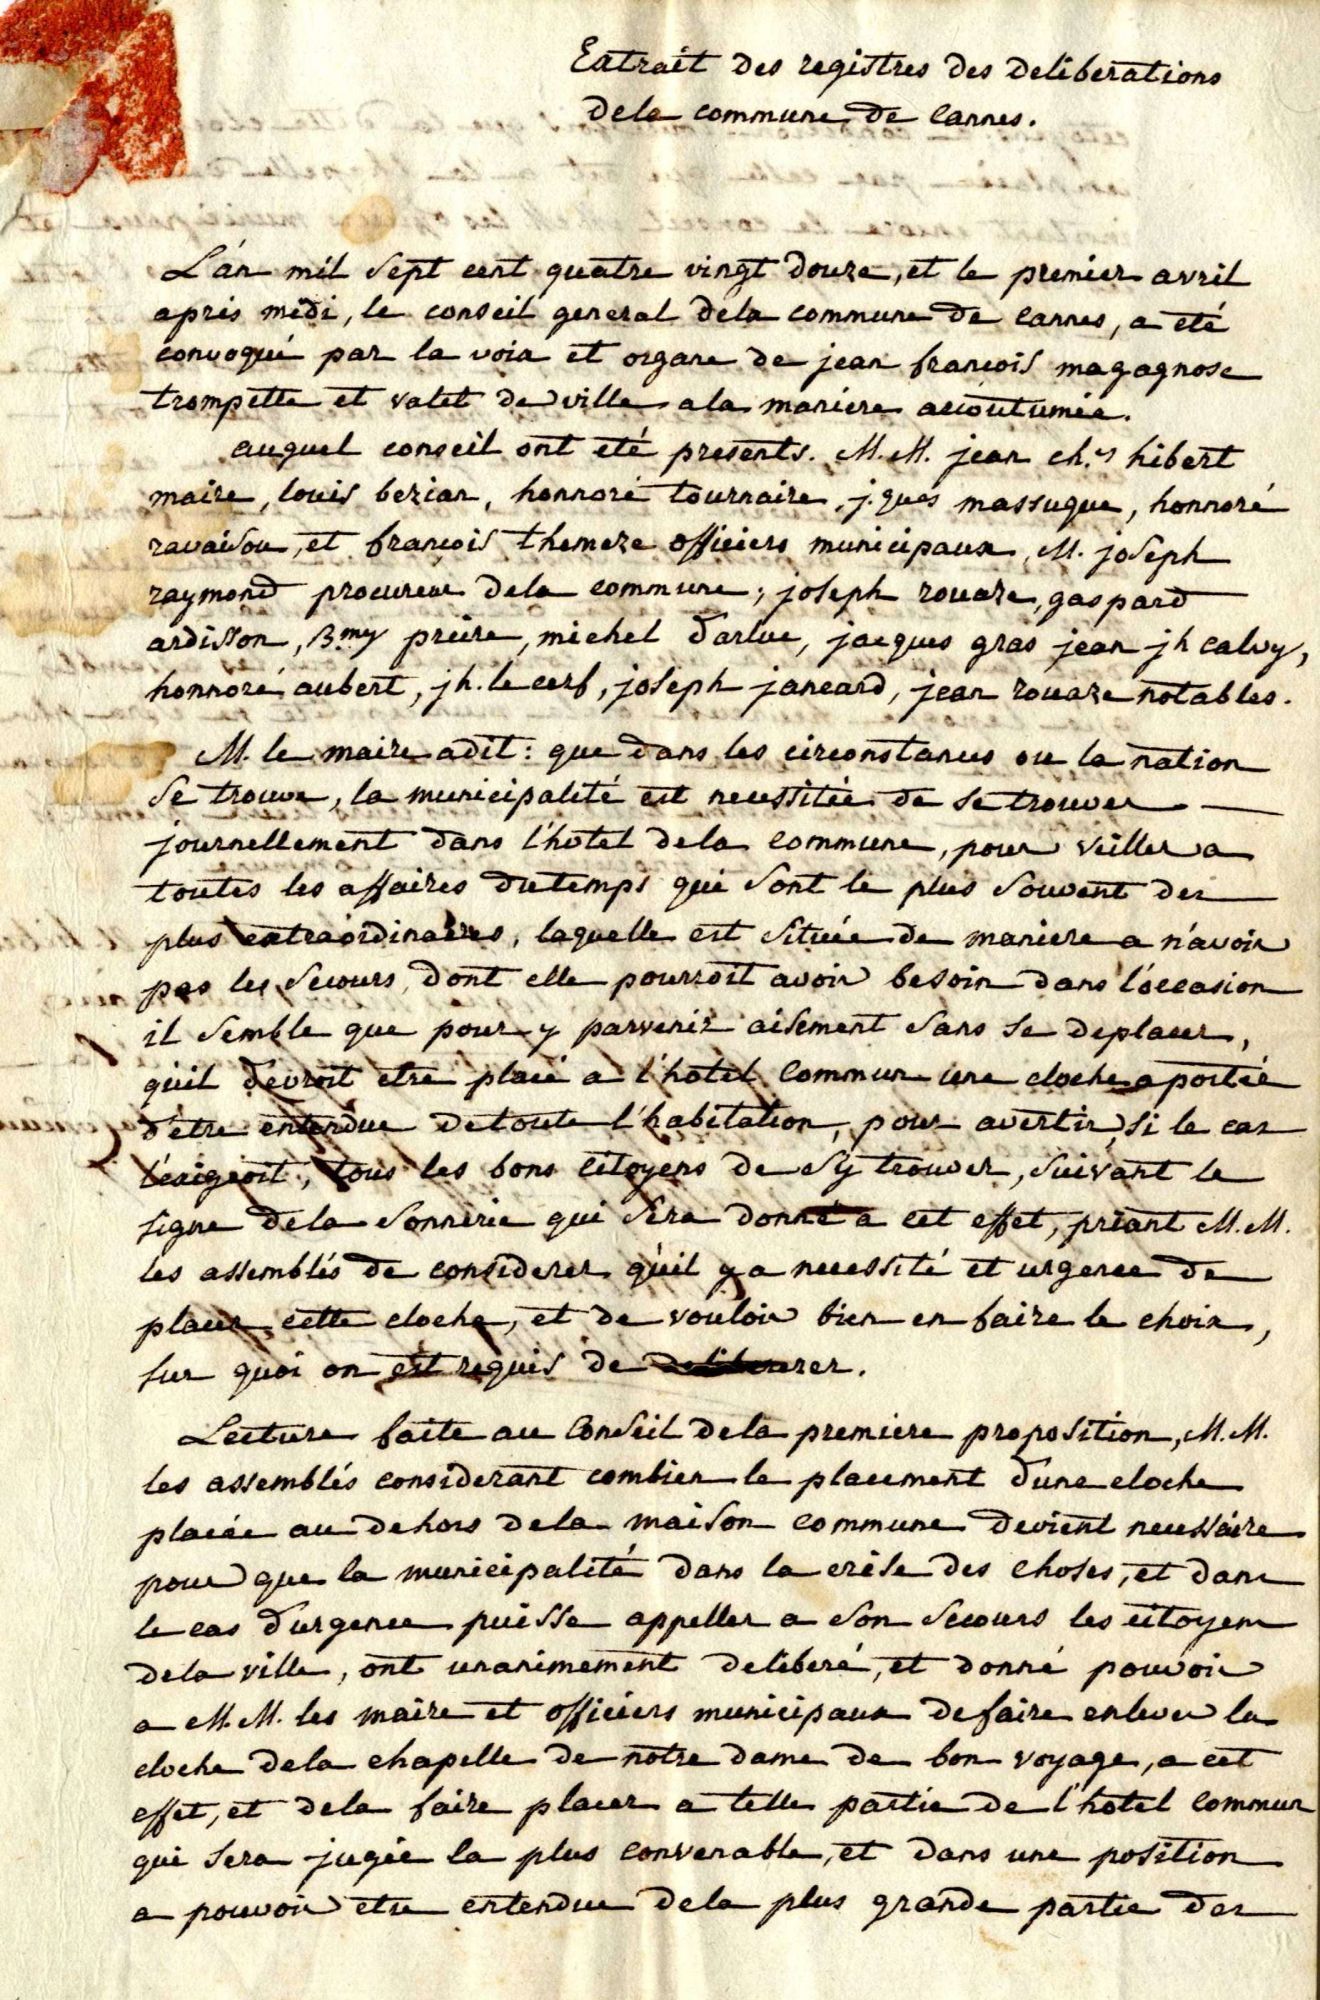 Extrait des registres des deliberations
dela commune de Cannes.
L'an mil sept cent quatre vingt douze, et le premier avril
aprés midi, le conseil general dela commune de Cannes, a eté
convoqué par la voix et organe de jean françois magagnose
trompette et valet de ville a la maniere accoutumée.
auquel conseil ont eté presents. M.M. jean ch.es hibert
maire, louis bezian, honnoré tournaire, j.ques massuque, honnoré
ravaisou, et françois themeze officiers municipaux, M. joseph
raymond procureur dela commune; joseph rouaze, gaspard
ardisson, B.my preire, michel darluc, jacques gras jean jh calvy,
honnoré aubert, jh. le cerf, joseph jancard, jean rouaze notables.
M. le maire a dit: que dans les circonstances ou la nation
se trouve, la municipalité est necessitée de se trouver
journellement dans l'hotel dela commune, pour veiller a
toutes les affaires du temps qui sont le plus souvent des
plus extraordinaires, laquelle est située de maniere a n'avoir
pas les secours dont elle pourroit avoir besoin dans l'occasion
il semble que pour y parvenir aisement sans se deplacer,
qu'il devroit etre placé a l'hotel commun une cloche a portée
d'etre entendue de toute l'habitation, pour avertir, si le cas
l'exigeoit, tous les bons citoyens de s'y trouver, suivant le
signe dela sonnerie qui sera donné a cet effet, priant M.M.
les assemblés de considerer qu'il y a necessité et urgence de
placer cette cloche, et de vouloir bien en faire le choix,
sur quoi on est requis de deliberer.
Lecture faite au Conseil dela premiere proposition, M.M.
les assemblés considerant combien le placement d'une cloche
placée au dehors dela maison commune devient necessaire
pour que la municipalité dans la crise des choses, et dans
le cas d'urgence puisse appeller a son secours les citoyens
dela ville, ont unanimement deliberé, et donné pouvoir
a M.M. les maire et officiers municipaux de faire enlever la
cloche dela chapelle de notre dame de bon voyage, a cet
effet, et dela faire placer a telle partie de l'hotel commun
qui sera jugée la plus convenable, et dans une position
a pouvoir etre entendue dela plus grande partie des